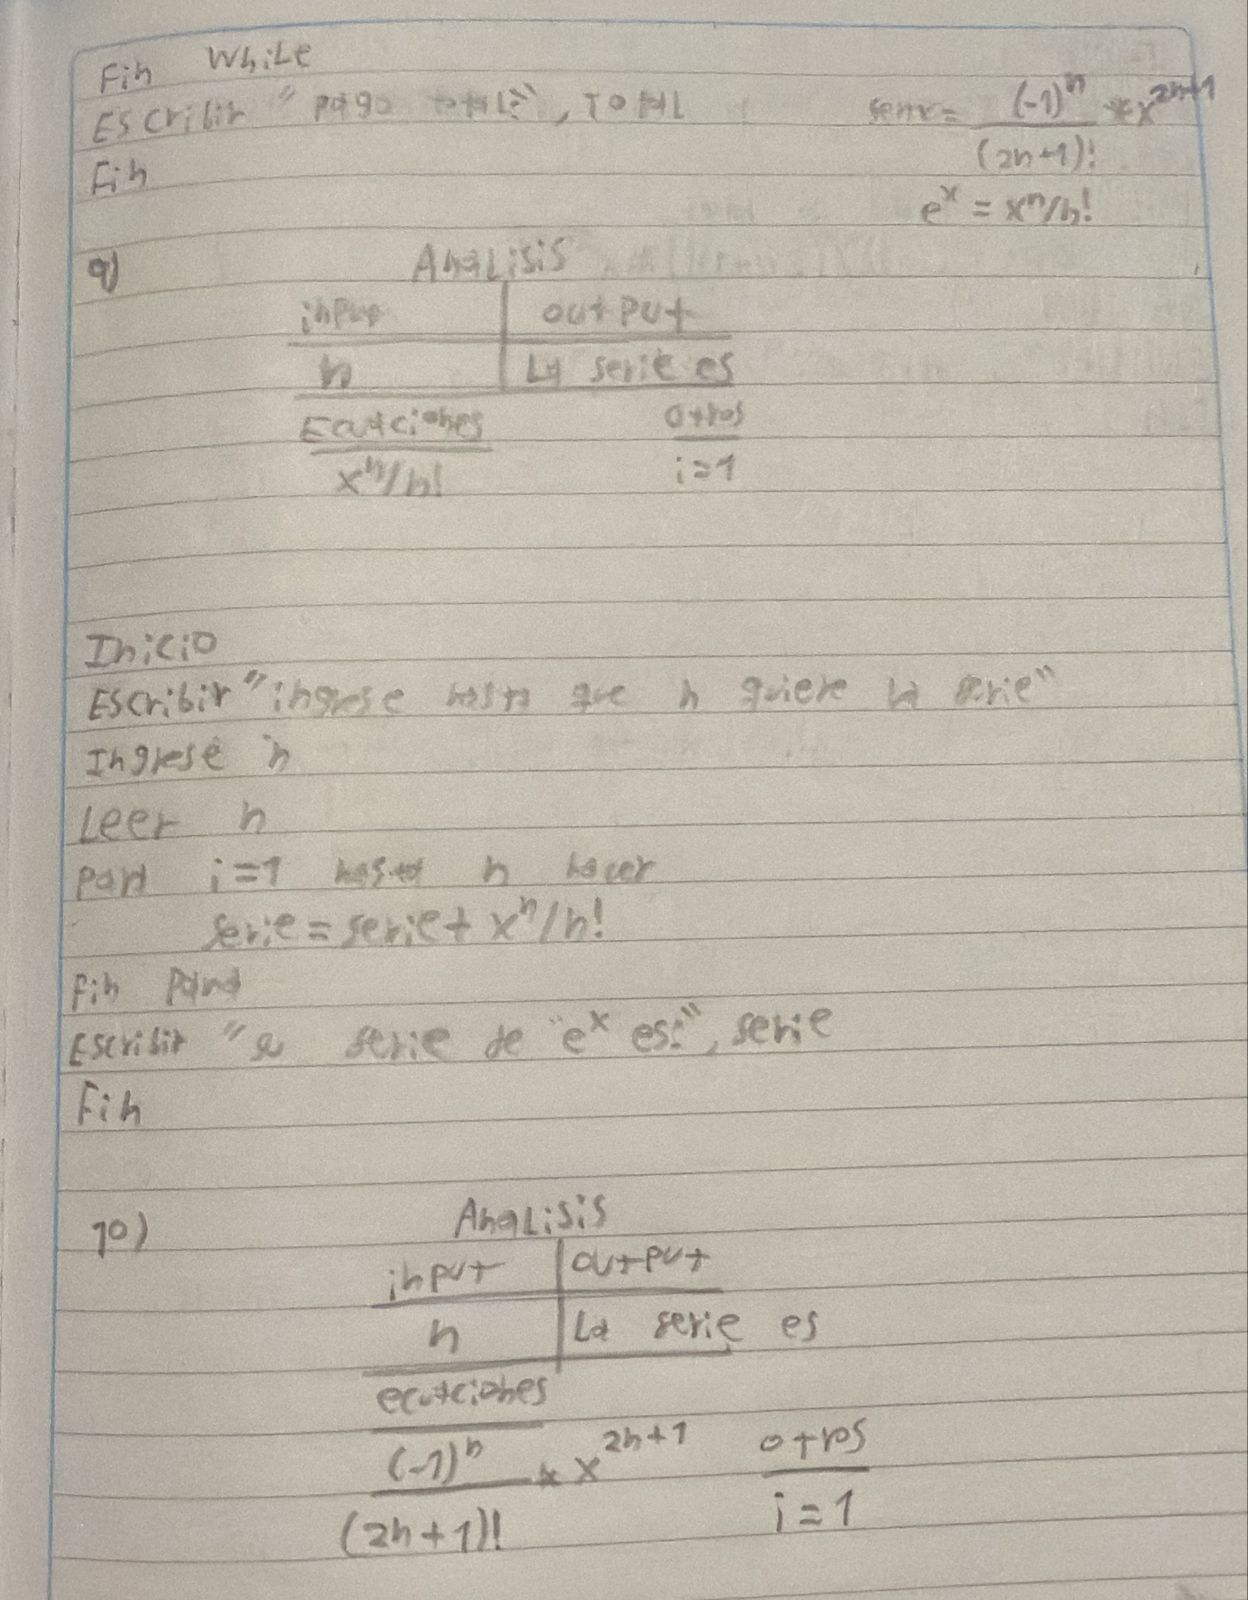 Fin While
Escribir "pago total:", TOTAL
Fin
senx = (-1)^n / (2n+1)! * x^2n+1
e^x = x^n/n!
9) Analisis
input output
n La serie es
Ecuaciones otros
x^n/n! i=1
Inicio
Escribir "ingrese hasta que n quiere la serie"
Ingrese n
Leer n
para i=1 hasta n hacer
serie = serie + x^n/n!
Fin para
Escribir "la serie de "e^x es:", serie
Fin
10) Analisis
input output
n La serie es
ecuaciones
(-1)^n / (2n+1)! * x^2n+1 otros
i=1